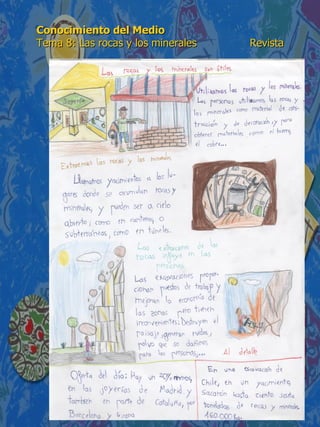 Conocimiento del Medio
Tema 8: Las rocas y los minerales Revista
Las rocas y los minerales son útiles.
Utilizamos las rocas y los minerales.
Las personas utilizamos las rocas y
los minerales como material de cons-
trucción y de decoración y para
obtener materiales como el hierro,
el cobre...
Joyería
Extraemos las rocas y los minerales
Llamamos yacimientos a los lu-
gares donde se acumulan rocas y
minerales, y pueden ser a cielo
abierto, como en canteras, o
subterráneos, como en túneles.
Las extracciones de las
rocas influye en las
personas.
Las excavaciones propor-
cionan puestos de trabajo y
mejoran la economía de
las zonas pero tienen
inconvenientes: Destruyen el
paisaje, generan ruidos,
polvo que es dañinos
para las personas,...
Al detalle
Oferta del día: Hay un 20% menos,
en las joyerías de Madrid y
también en parte de Cataluña, por
Barcelona y Girona
En una excavación de
Chile, en un yacimiento,
sacaron hasta
toneladas de rocas y minerales
160.000